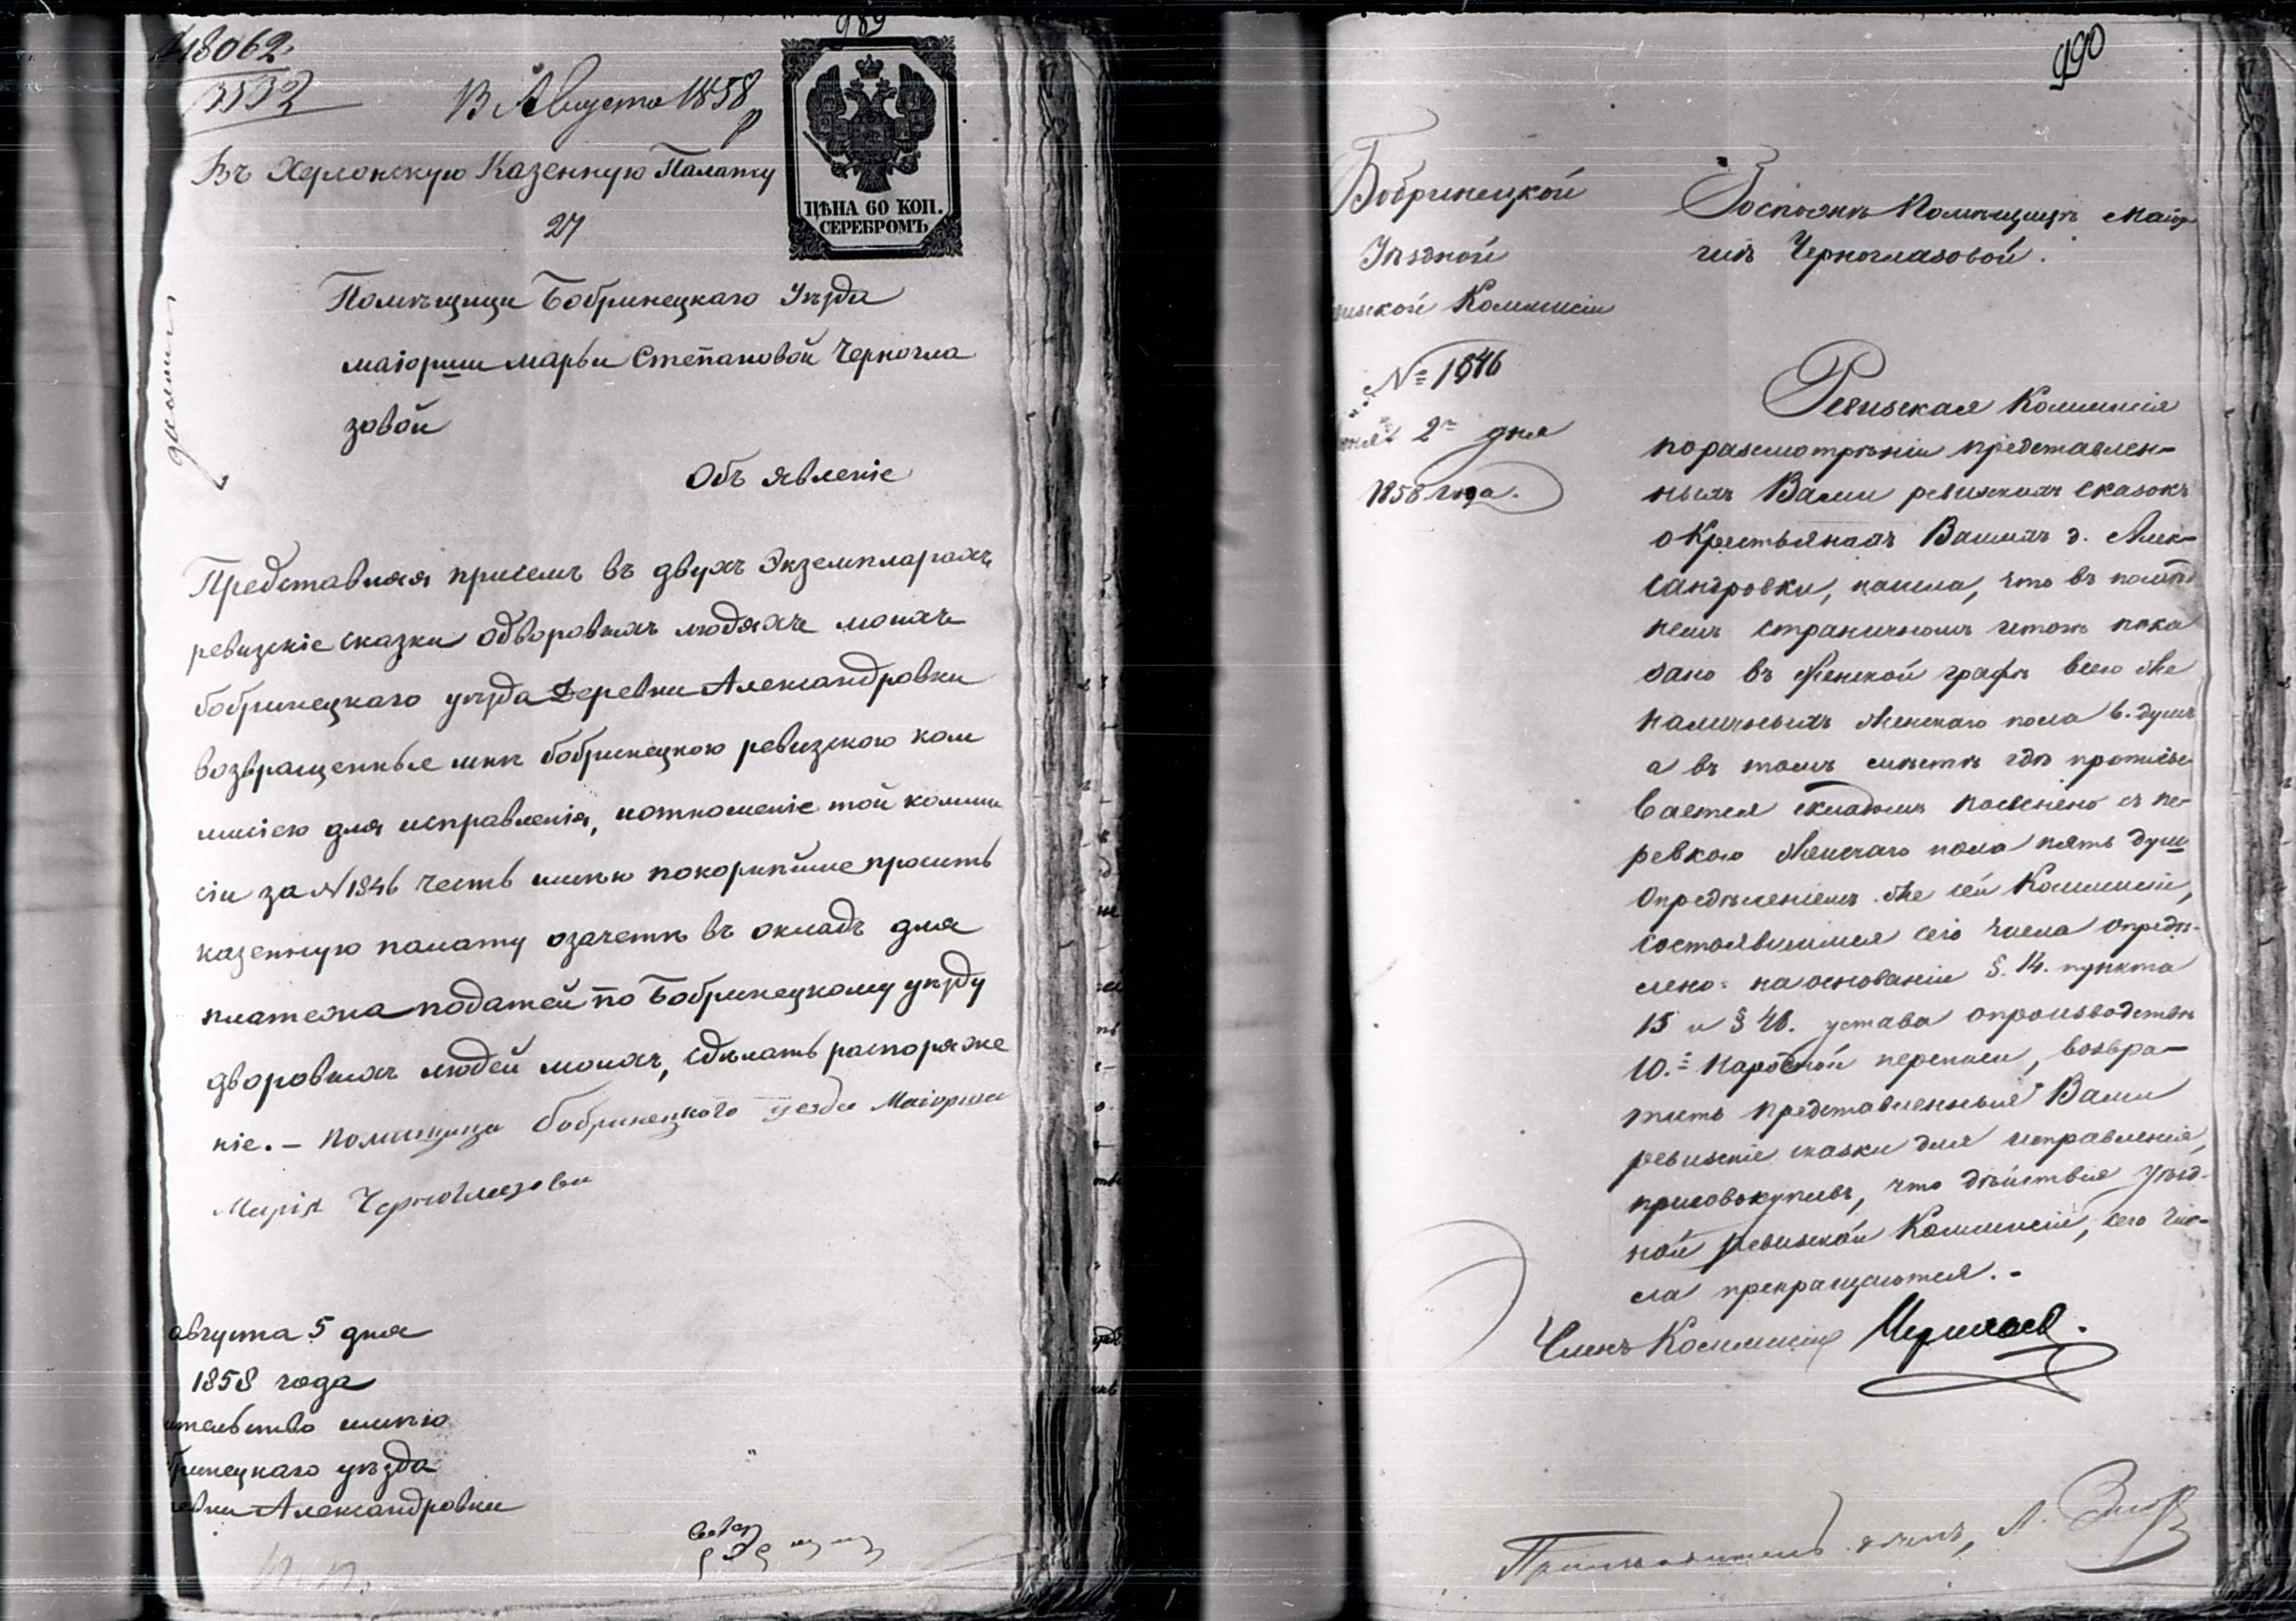 989
18062
13 Августа 1858
Въ Херсонскую Казенную Палату
27
ЦѢНА 60 КОП.
СЕРЕБРОМЪ
Помѣщицы Бобринецкаго Уѣзда
маіорши марьи Степановой Черногла
зовой
Объ явленіе
Представляя присемъ въ двухъ Экземплярахъ
ревизскіе сказки одворовыхъ людяхъ моихъ
бобринецкаго уѣзда Деревни Александровки
возвращенные мнѣ бобринецкою ревизскою ком
мисіею для исправленія, иотношеніе той комми
сіи за N 1846 честь имѣю покорнѣйше просить
казенную палату озачетѣ въ окладъ для
платежа податей по Бобринецкому уѣзду
дворовыхъ людей моихъ, сдѣлать распоряже
ніе. – Помещица бобринецкого уезда Маіорша
Марія Черноглазова
августа 5 дня
1858 года
имѣю
уѣзда
Александровки
990
Бобринецкой
Уѣздной
Коммисіи
№ 1846
2го дня
1858 года.
Госпожѣ Помѣщицѣ Маіор
шѣ Черноглазовой.
Ревизская Коммисія
поразсмотрѣніи представлен-
ныхъ Вами ревизскихъ сказокъ
о Крестьянахъ Вашихъ д. Алек-
сандровки, нашла, что въ послѣд
немъ страничномъ итогѣ пока
зано въ женской графѣ всего же
наличныхъ женскаго пола 6. душъ
а въ томъ мѣстѣ гдѣ прописы
вается складомъ пояснено съ пе-
ревкою женскаго пола пять душ
Опредѣленіемъ же сей Коммисіи,
состоявшимся сего числа опредѣ-
лено: на основаніи §. 14. пункта
15 и § 46. устава опроизводствѣ
10.й народной переписи, возвра-
тить представленныя Вами
ревизскіе сказки для исправленія,
присовокупивъ, что дѣйствія Уѣзд-
ной ревизской Коммисіи, сего чис-
ла прекращаются. -
Членъ Коммисіи